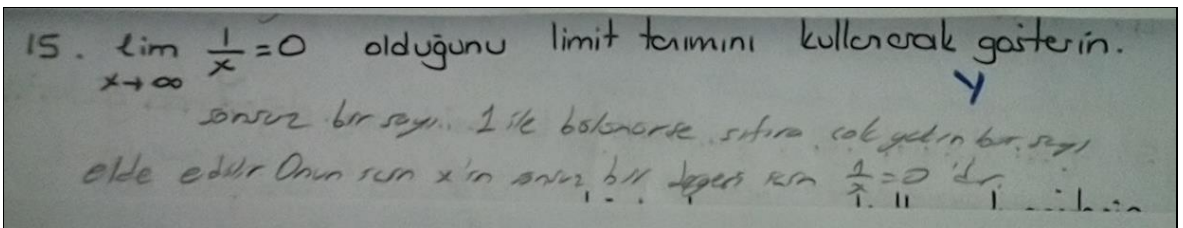 15. lim 1/x = 0 olduğunu limit tanımını kullanarak gösterin.
x→∞
Y
sonsuz bir sayı 1 ile bölünürse sıfıra çok yakın bir sayı
elde edilir Onun için x'in sonsuz bir değeri için 1/x = 0 'dır.